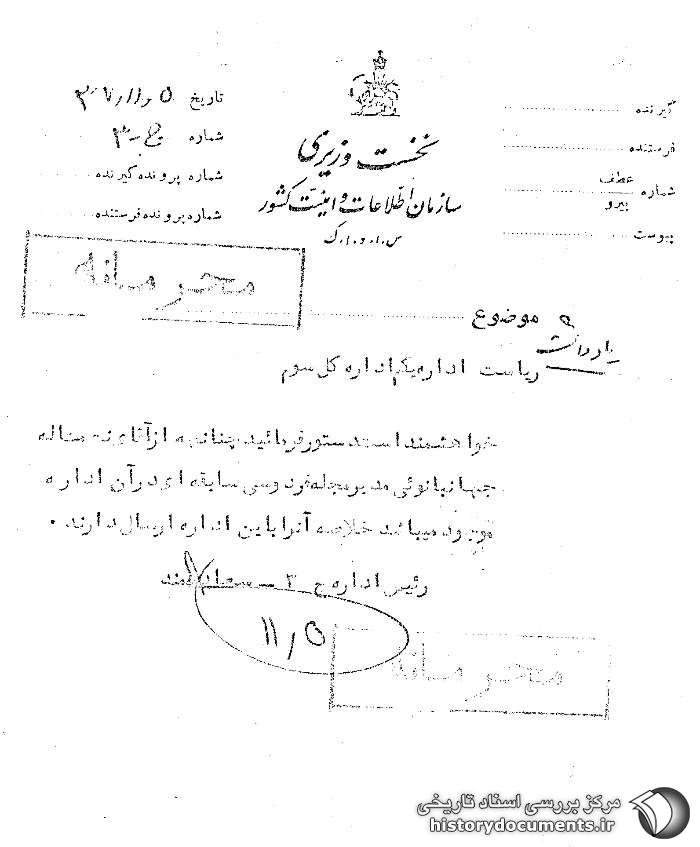 نخست وزیری
سازمان اطلاعات و امنیت کشور
س.ا.و.ا.ک
گیرنده
فرستنده
شماره عطف
پیرو
پیوست
تاریخ ۵ / ۱۱ / ۳۷
شماره
شماره پرونده گیرنده
شماره پرونده فرستنده
محرمانه
موضوع
یادداشت
ریاست اداره یکم اداره کل سوم
خواهشمند است دستور فرمائید چنانچه از آقای نعمت اله
جهانبانوئی مدیر مجله فردوسی سابقه ای در آن اداره
موجود میباشد خلاصه آنرا باین اداره ارسال دارند .
رئیس اداره ج ۳ – سعادتمند
۵ / ۱۱
محرمانه
مرکز بررسی اسناد تاریخی
historydocuments.ir